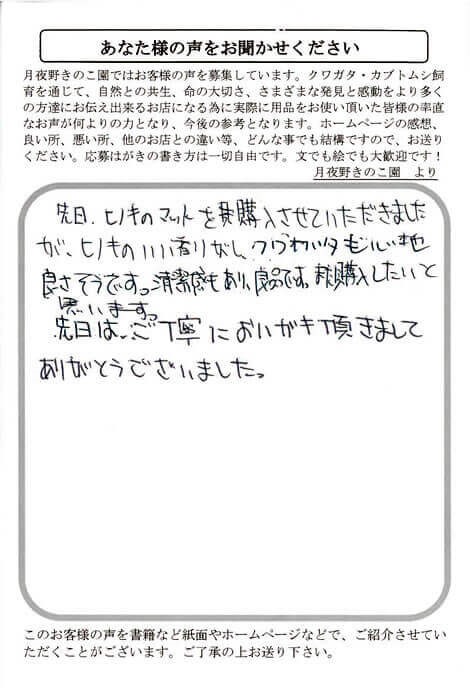 あなた様の声をお聞かせください
月夜野きのこ園ではお客様の声を募集しています。クワガタ・カブトムシ飼
育を通じて、自然との共生、命の大切さ、さまざまな発見と感動をより多く
の方達にお伝え出来るお店になる為に実際に用品をお使い頂いた皆様の率直
なお声が何よりの力となり、今後の参考となります。ホームページの感想、
良い所、悪い所、他のお店との違い等、どんな事でも結構ですので、お送り
ください。応募はがきの書き方は一切自由です。文でも絵でも大歓迎です！
月夜野きのこ園　より
先日、ヒノキのマットを購入させていただきました
が、ヒノキのいい香りがし、クワガタも心地
良さそうです。清潔感もあり、良品です。また購入したいと
思います。
先日は、ご丁寧においがキ頂きまして
ありがとうございました。
このお客様の声を書籍など紙面やホームページなどで、ご紹介させてい
ただくことがございます。ご了承の上お送り下さい。